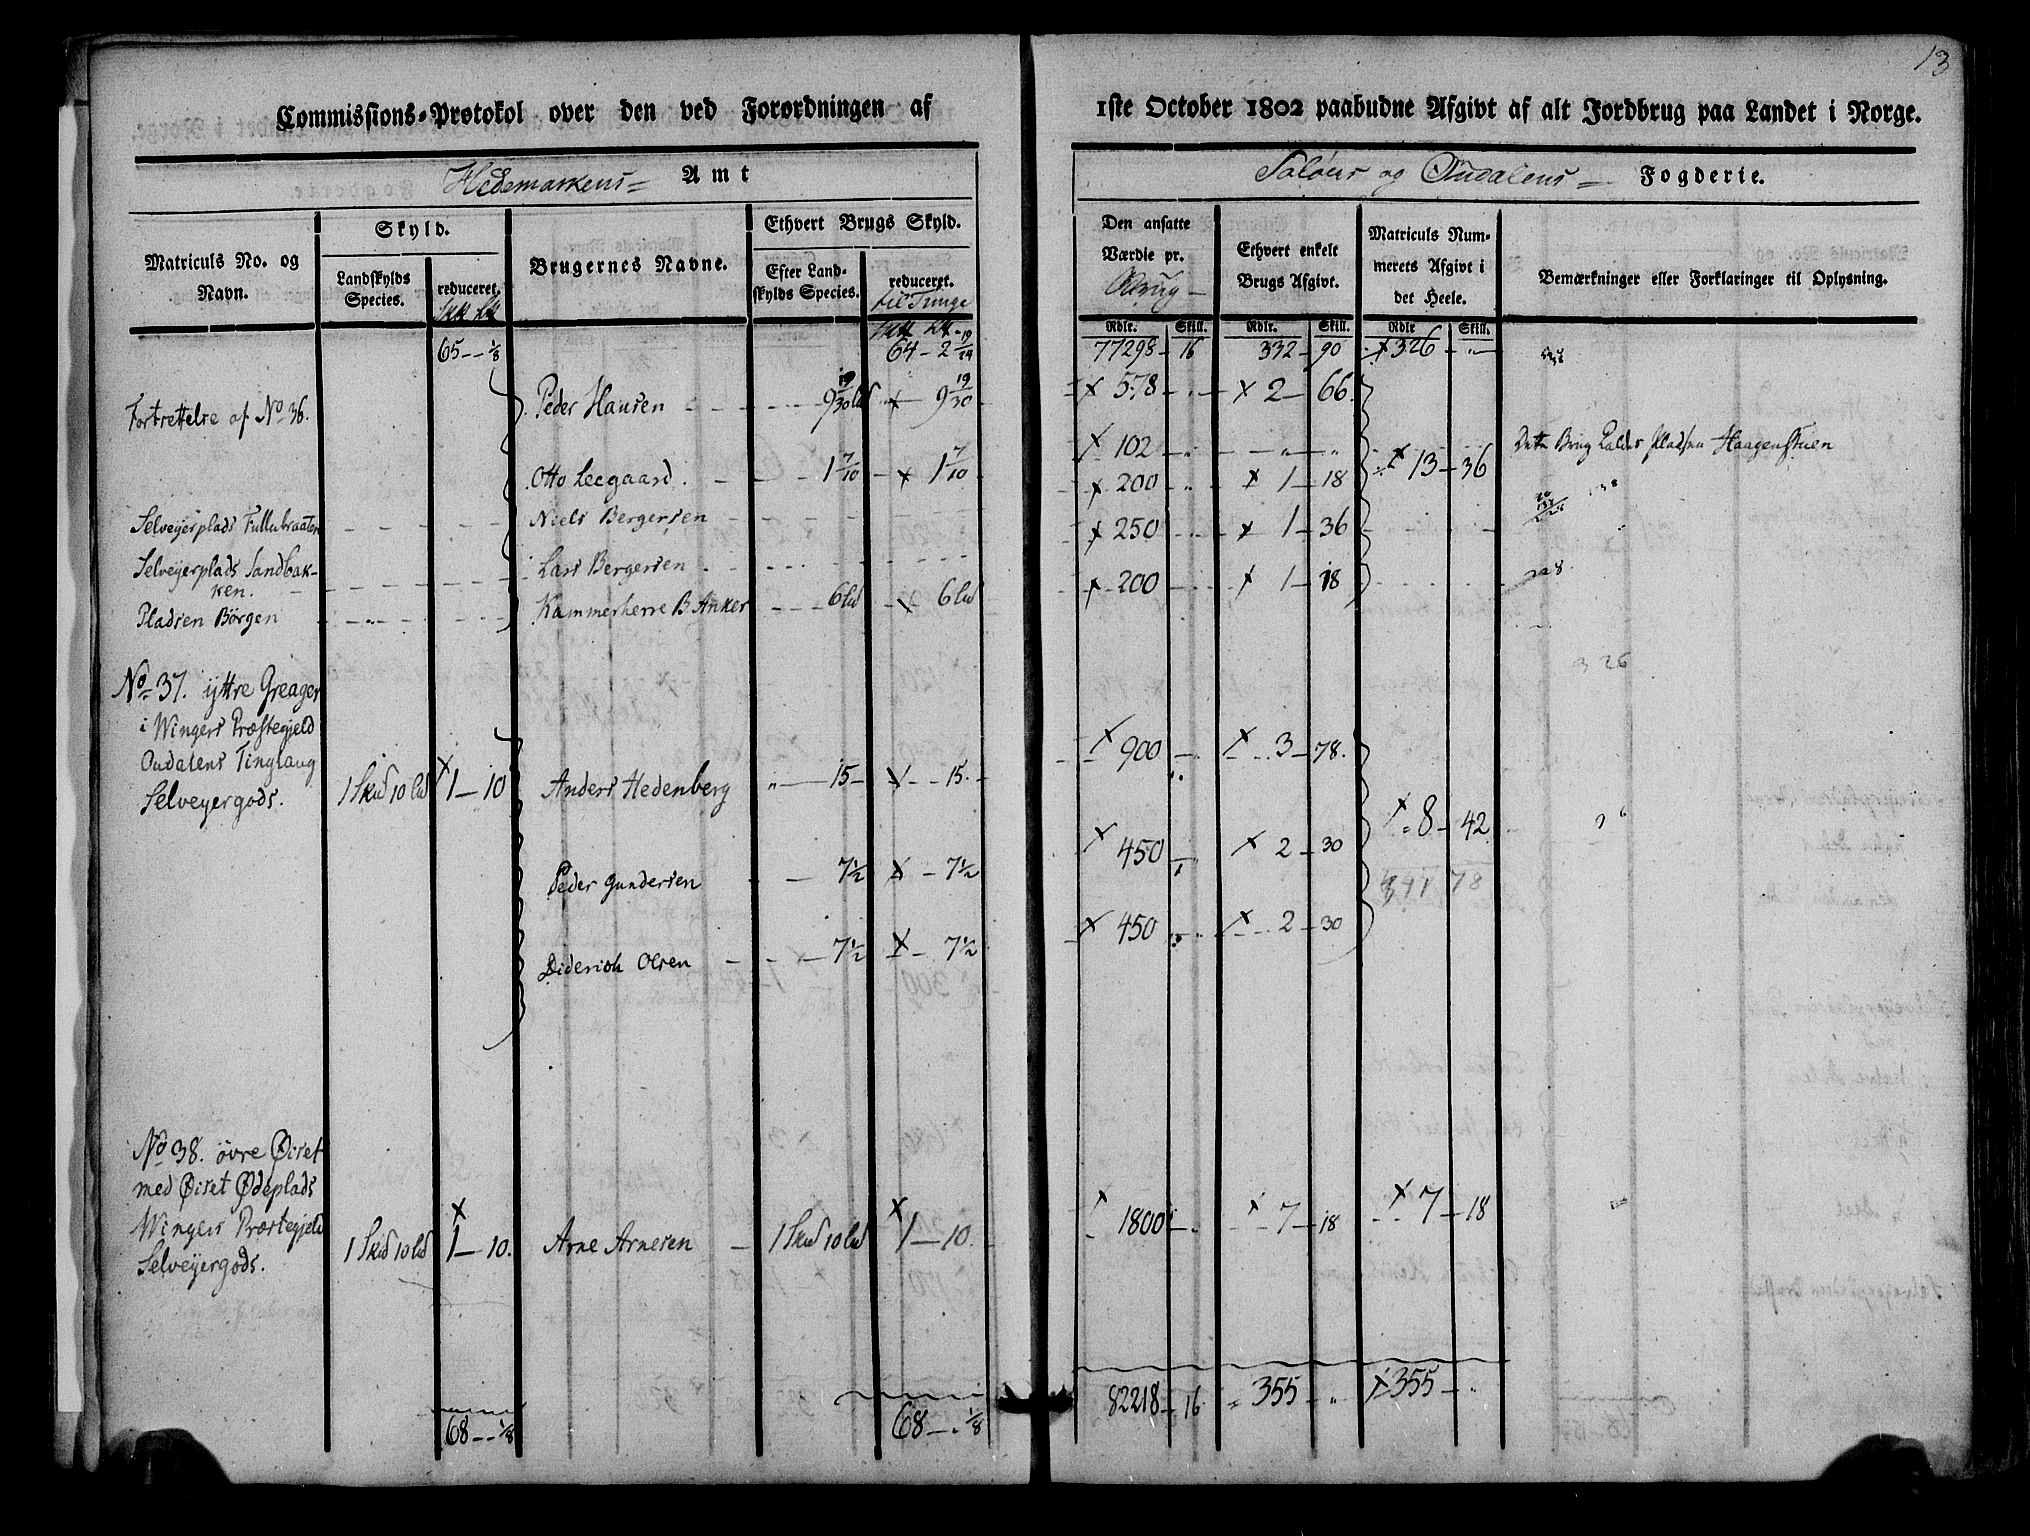 13
Commissions-Protokol over den ved Forordningen af 1ste October 1802 paabudne Afgivt af alt Jordbrug paa Landet i Norge.
Hedemarkens Amt
Soløers og Oudalens Fogderie.
Matriculs No. og Navn.
Skyld.
Landskylds Species.
reduceret.
Brugernes Navne.
Ethvert Brugs Skyld.
Efter Landskylds Species.
reduceret.
til Tunge
Den ansatte Værdie pr.
Brug
Ethvert enkelt Brugs Afgivt.
Matriculs Nummerets Afgivt i det Heele.
Bemærkninger eller Forklaringer til Oplysning.
Rdlr. Skill. Rdlr. Skill. Rdlr Skill.
65 - - 1/8 64 - 2 19/24 77298 - 16 332 - 90 x 326 - "
Fortsettelse af No 36. Peder Hansen 9 19/30 lud x 9 19/30 x 578 x 2 - 66
Otto Leegaard 1 7/10 x 1 7/10 x 102 - " - " x 13 - 36 Dette Brug Kaldes Pladsen Haagenstuen
Selveyerplads Fullubraaten Niels Bergersen x 200 x 1 - 18
Selveyerplads Sandbakken. Lars Bergersen x 250 x 1 - 36
Pladsen Börgen Kammerherre B Anker 6 lud x 6 lud x 200 x 1 - 18
326
No 37. yttre Greager
i Wingers Præstegjeld
Oudalens Tinglaug
Selveyergods. 1 Skud 10 lud x 1 - 10 Anders Hedenberg 15 x 15 x 900 x 3 - 78. x 8 - 42
Peder Gundersen 7 1/2 x 7 1/2 x 450 x 2 - 30
Diderich Olsen 7 1/2 x 7 1/2 x 450 x 2 - 30
No 38. övre Øiset
med Øiset Ødeplads
Wingers Præstegjeld
Selveyergods. 1 Skud 10 lud x 1 - 10. Arne Arnesen 1 Skud 10 lud x 1 - 10. x 1800 x 7 - 18 x 7 - 18
68 - - 1/8 68 - - 1/8 82218 - 16 355 - " x 355 - "